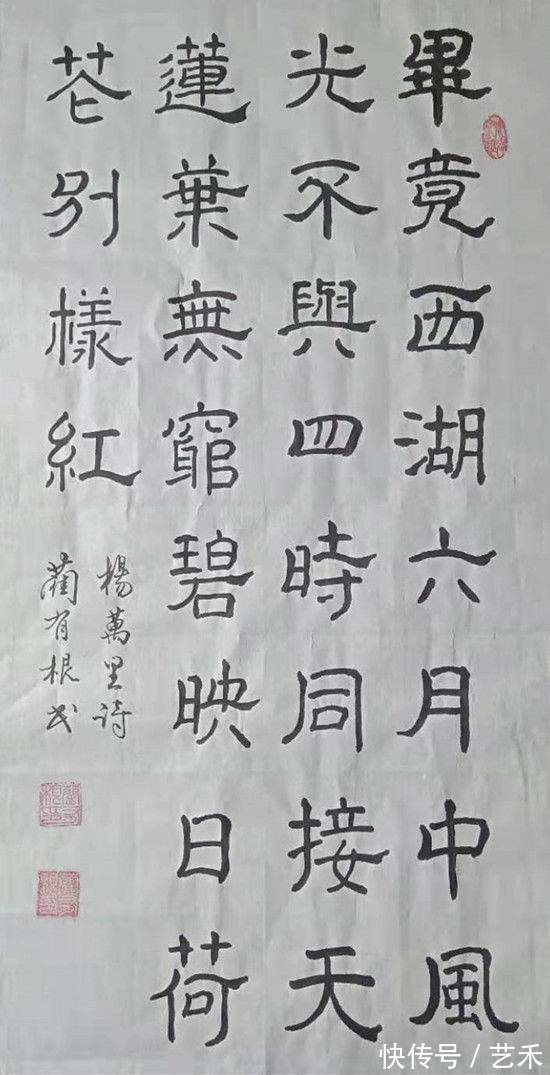 畢竟西湖六月中風
光不與四時同接天
蓮葉無窮碧映日荷
花別樣紅
楊萬里詩
藺有根书
快传号 / 艺禾